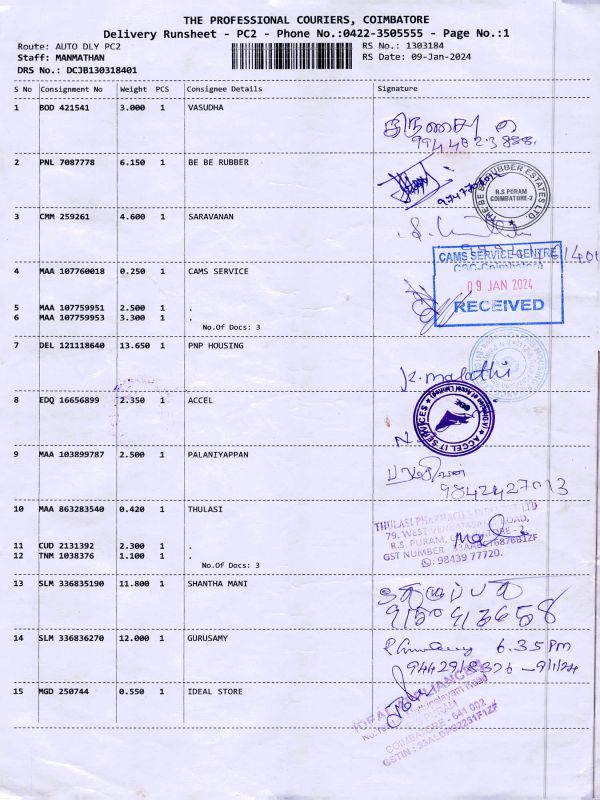 THE PROFESSIONAL COURIERS, COIMBATORE
Delivery Runsheet - PC2 - Phone No.:0422-3505555 - Page No.:1
Route: AUTO DLY PC2 RS No.: 1303184
Staff: MANMATHAN RS Date: 09-Jan-2024
DRS No.: DCJB130318401
S No Consignment No Weight PCS Consignee Details Signature
1 BOD 421541 3.000 1 VASUDHA
2 PNL 7087778 6.150 1 BE BE RUBBER
THE BE BE RUBBER ESTATES LTD
R.S PURAM
COIMBATORE-2
3 CMM 259261 4.600 1 SARAVANAN
4 MAA 107760018 0.250 1 CAMS SERVICE
CAMS SERVICE CENTRE
CSC-Coimbatore
09 JAN 2024
RECEIVED
5 MAA 107759951 2.500 1 .
6 MAA 107759953 3.300 1 .
No.Of Docs: 3
7 DEL 121118640 13.650 1 PNP HOUSING
K. malathi
8 EDQ 16656899 2.350 1 ACCEL
ACCEL IT SERVICES
9 MAA 103899787 2.500 1 PALANIYAPPAN
9842427013
10 MAA 863283540 0.420 1 THULASI
THULASI PHARMACIES LTD
79, WEST ROAD,
R.S. PURAM,
GST NUMBER
98439 77720.
11 CUD 2131392 2.300 1 .
12 TNM 1038376 1.100 1 .
No.Of Docs: 3
13 SLM 336835190 11.800 1 SHANTHA MANI
9150413658
14 SLM 336836270 12.000 1 GURUSAMY
6.35 Pm
9/1/24
15 MGD 250744 0.550 1 IDEAL STORE
COIMBATORE - 641 002